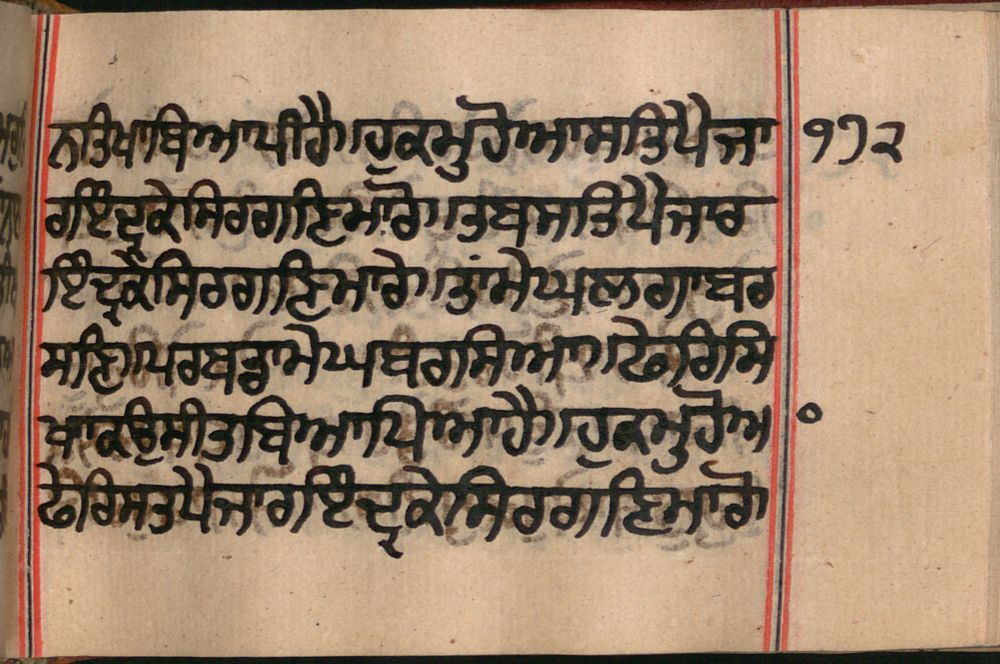 ਨਤਿਖਾਬਿਆਪੀਹੈ।ਹੁਕਮੁਹੋਆਸਤਿਪੈਜਾ ੧੭੨
ਰਇੰਦ੍ਰਕੇਸਿਰਗਣਿਮਾਰੋ।ਤਬਸਤਿਪੈਜਾਰ
ਇੰਦ੍ਰਕੇਸਿਰਗਣਿਮਾਰੇ।ਤਾਂਮੇਘਲਗਾਬਰ
ਸਣਿ।ਪਰਬਡਾਮੇਘਬਰਸਿਆ।ਫੇਰਿਸਿ
ਖਾਕਉਸੀਤਬਿਆਪਿਆਹੈ।ਹੁਕਮੁਹੋਅ
ਫੇਰਿਸਤਪੈਜਾਰਇੰਦ੍ਰਕੇਸਿਰਗਣਿਮਾਰੋ